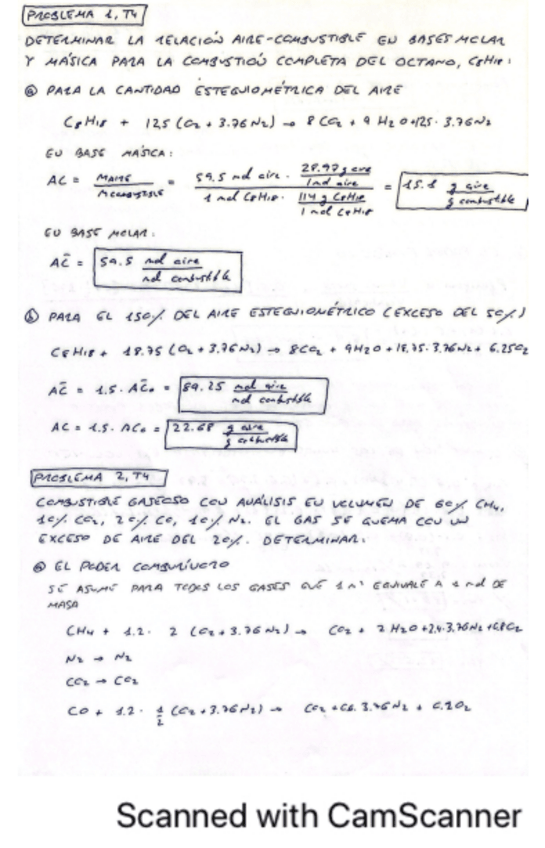 PROBLEMA 1, T4
DETERMINAR LA RELACIÓN AIRE-COMBUSTIBLE EN BASES MOLAR
Y MÁSICA PARA LA COMBUSTIÓN COMPLETA DEL OCTANO, C8H18:
ⓐ PARA LA CANTIDAD ESTEQUIOMÉTRICA DEL AIRE
C8H18 + 12.5 (O2 + 3.76 N2) → 8 CO2 + 9 H2O + 12.5 · 3.76 N2
EN BASE MÁSICA:
AC = MAIRE / MCOMBUSTIBLE = 59.5 mol aire · 28.97 g aire / 1 mol aire / 1 mol C8H18 · 114 g C8H18 / 1 mol C8H18 = 15.1 g aire / g combustible
EN BASE MOLAR:
AC̄ = 59.5 mol aire / mol combustible
ⓑ PARA EL 150% DEL AIRE ESTEQUIOMÉTRICO (EXCESO DEL 50%)
C8H18 + 18.75 (O2 + 3.76 N2) → 8CO2 + 9H2O + 18.75 · 3.76 N2 + 6.25O2
AC̄ = 1.5 · AC̄o = 89.25 mol aire / mol combustible
AC = 1.5 · ACo = 22.68 g aire / g combustible
PROBLEMA 2, T4
COMBUSTIBLE GASEOSO CON ANÁLISIS EN VOLUMEN DE 60% CH4,
10% CO2, 20% CO, 10% N2. EL GAS SE QUEMA CON UN
EXCESO DE AIRE DEL 20%. DETERMINAR:
ⓐ EL PODER COMBURÍVORO
SE ASUME PARA TODOS LOS GASES QUE 1 m³ EQUIVALE A 1 mol DE
MASA
CH4 + 1.2 · 2 (O2 + 3.76 N2) → CO2 + 2 H2O + 2.4 · 3.76 N2 + 0.8 O2
N2 → N2
CO2 → CO2
CO + 1.2 · 1/2 (O2 + 3.76 N2) → CO2 + 0.6 · 3.76 N2 + 0.1 O2
Scanned with CamScanner